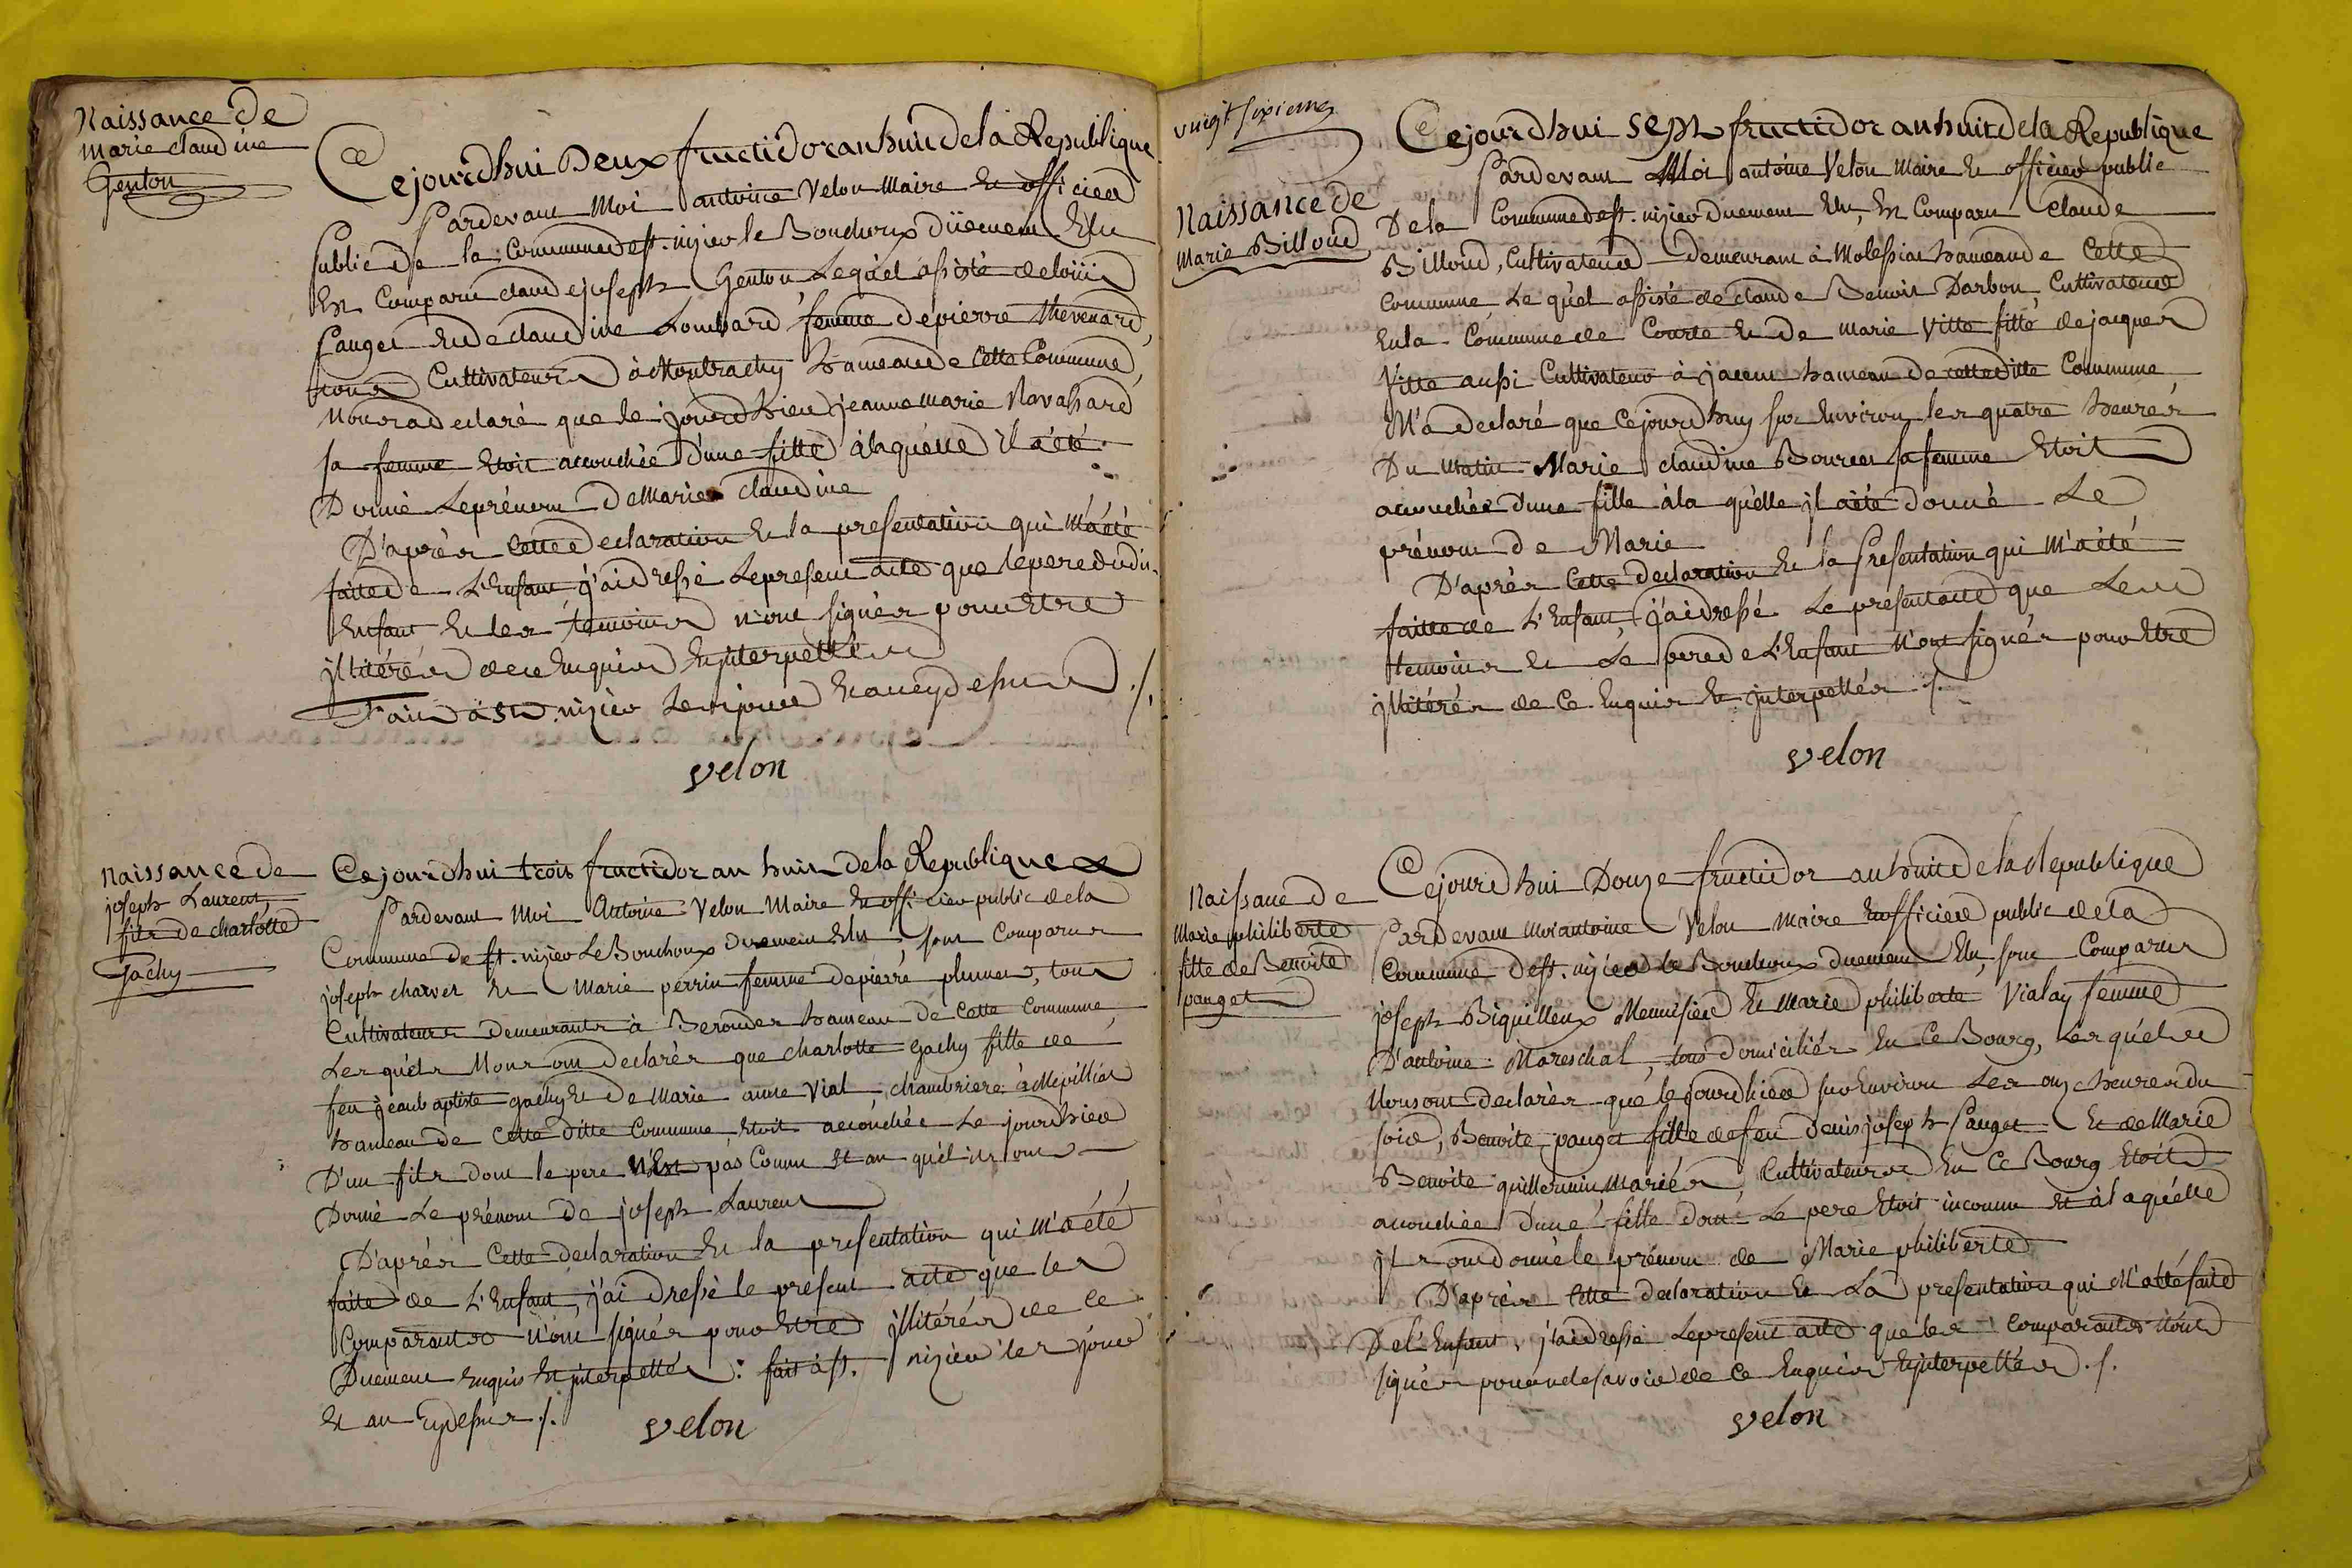 Naissance de
marie claudine
Genton
Cejourdhui Deux fructidor an huit dela Republique
Pardevant Moi antoine Velon Maire et officier
Public De la Commune de st. nizier le Bouchoux düement Elu
Est Comparu claude joseph Genton Lequel assisté de
pauget et de claudine Lombard femme de pierre thevenard,
tous Cultivateurs à Montrachy hameau de cette Commune,
Nous a declaré que le jourdhier jeanne marie Navassard
sa femme Etoit accouchée d'une fille à laquelle il a été
Donné Le prénom de Marie claudine
D'après cette declaration et la presentation qui m'a été
faite de L'Enfant j'ai dressé Le present acte que le pere dudit
Enfant et les temoins n'ont signés pour Etre
jllitérés de ce Enquis Et jnterpellés
Fait à St. nizier Les jour et an cydessus ./.
velon
Naissance de
joseph Laurent,
fils de charlotte
Gachy
Cejourdhui trois fructidor an huit de la Republique
Pardevant Moi Antoine Velon Maire et officier public de la
Commune de st. nizier Le Bouchoux duement Elu, sont Comparus
joseph charvet et Marie perrin femme de pierre plumet, tous
Cultivateurs Demeurants à Berouder hameau de cette commune,
Lesquels Nous ont declarés que charlotte gachy fille de
feu jean baptiste gachy Et de Marie anne Vial, chambriere à Mépilliat
hameau de cette ditte Commune, etoit accouchée Le jourdhier
D'un fils dont le pere N'Est pas Connu et au quel ils ont
Donné Le prénom de joseph Laurent
D'après cette declaration Et la presentation qui m'a été
faite de L'Enfant, j'ai dressé le present acte que les
Comparants n'ont signés pour Etre jllitérés de ce
Duement enquis Et jnterpellés : fait à st. nizier les jour
et an cydessus ./.
velon
vingt sixieme
Cejourdhui sept fructidor an huit de la Republique
Pardevant Moi antoine Velon Maire et officier public
Naissance de
Marie Billoud
De la Commune de st. nizier duement Elu, Est Comparu Claude
Billoud, Cultivateur demeurant à Molissiat hameau de Cette
Commune, Le quel assisté de claude Benoit Darbon Cultivateur
En la Commune de Courte et de Marie Vitte fille de jacques
Vitte aussi Cultivateur à jacem hameau de cette ditte Commune
M'a declaré que Cejourdhuy sur Environ les quatre heures
Du matin Marie claudine Bourcet sa femme Etoit
acouchée d'une fille à la quelle jl a été donné Le
prénom de Marie
D'après Cette declaration et la Presentation qui M'a été
faitte de L'Enfant, j'ai dressé Le present acte que Les
temoins et Le pere de L'Enfant N'ont signés pour Etre
jllitérés de Ce Enquis Et jnterpellés ./.
velon
Naissance de
Marie philiberte
fille de Benoite
pauget
Cejourdhui Douze fructidor an huit de la Republique
Pardevant Moi antoine Velon Maire Et officier public de la
Commune de st. nizier le Bouchoux duement Elu, sont Comparus
joseph Biquilleux Menuisier Et Marie philiberte Vialay femme
D'antoine Mareschal, tous domiciliés En Ce Bourg, Lesquels
Nous ont declarés que le jourdhier sur Environ Les onze heures du
soir, Benoite pauget fille de feu denis joseph Pauget Et de Marie
Benoite guillermin Mariés, Cultivateurs En Ce Bourg Etoit
acouchée D'une fille dont Le pere Etoit inconnu et à laquelle
jls ont donné le prénom de Marie philiberte
D'après Cette declaration Et La presentation qui M'a été faite
De L'Enfant, j'ai dressé Le present acte que les Comparants n'ont
signés pour ne le savoir de Ce Enquis Et jnterpellés ./.
velon